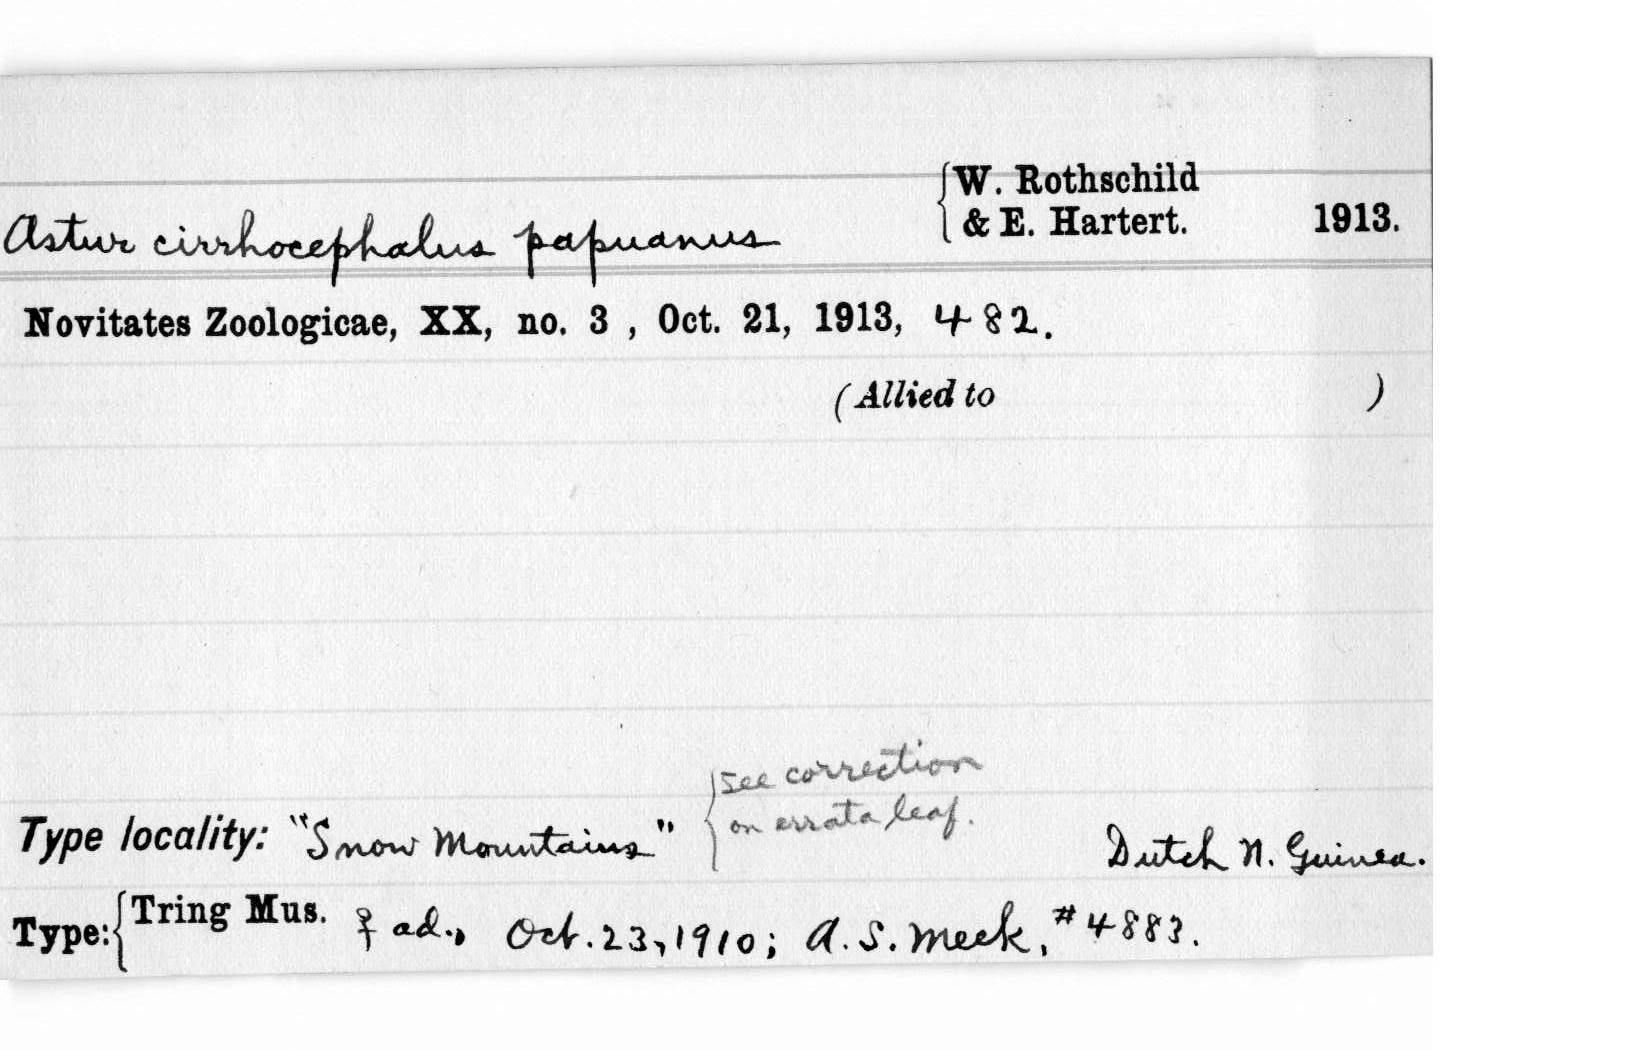 Astur cirrhocephalus papuanus { W. Rothschild & E. Hartert. 1913.
Novitates Zoologicae, XX, no. 3 , Oct. 21, 1913, 482.
(Allied to )
{ see correction
on errata leaf.
Type locality: "Snow Mountains" Dutch N. Guinea.
Type: { Tring Mus. ♀ ad., Oct. 23, 1910; A. S. Meek, #4883.